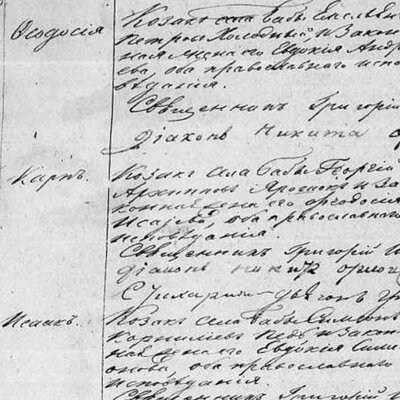 Ѳеодосія
Козакъ села Бабы Емельянъ
Петровъ Холодный и закон
ная жена его Евдокія Андре
ева, оба православнаго испо
вѣданія.
Священникъ Григорій
діаконъ Никита
Карпъ.
Козакъ села Бабы Георгій
Архиповъ и за
конная жена его Ѳеодосія
Исаева, оба православнаго
исповѣданія.
Священникъ Григорій
діаконъ
Исаакъ.
Козакъ села Бабы Симеонъ
Корниліевъ и закон
ная жена его Евдокія Симе
онова, оба православнаго
исповѣданія.
Священникъ Григорій